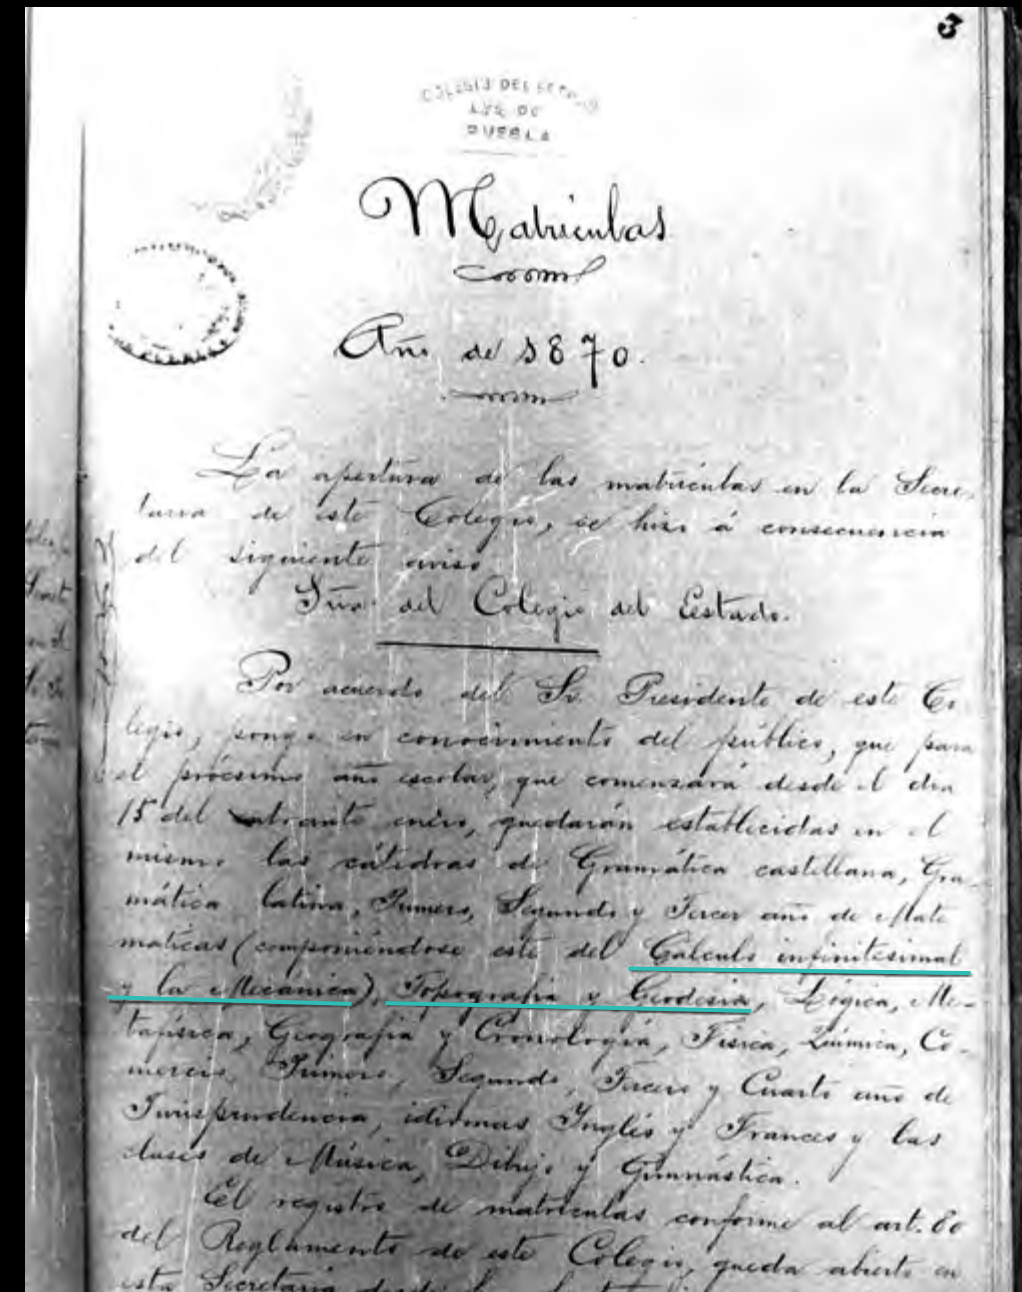 3
COLEGIO DEL ESTADO
DE
PUEBLA
Matriculas
Año de 1870.
La apertura de las matriculas en la Secre-
taria de este Colegio, se hizo á consecuencia
del siguiente aviso
Sria. del Colegio del Estado.
Por acuerdo del Sr. Presidente de este Co
legio, pongo en conocimiento del público, que para
el procsimo año escolar, que comenzará desde el dia
15 del entrante enero, quedarán establecidas en el
mismo las cátedras de Gramática castellana, Gra-
mática latina, Primero, Segundo y Tercer año de Mate
maticas (componiéndose este del Cálculo infinitesimal
y la Mecánica), Topografia y Geodesia, Lógica, Me-
tafísica, Geografia y Cronologia, Fisica, Quimica, Co-
mercio, Primero, Segundo, Tercero y Cuarto año de
Jurisprudencia, idiomas Inglés y Frances y las
clases de Música, Dibujo y Gimnástica.
El registro de matriculas conforme al art. 80
del Reglamento de este Colegio, queda abierto en
esta Secretaria desde